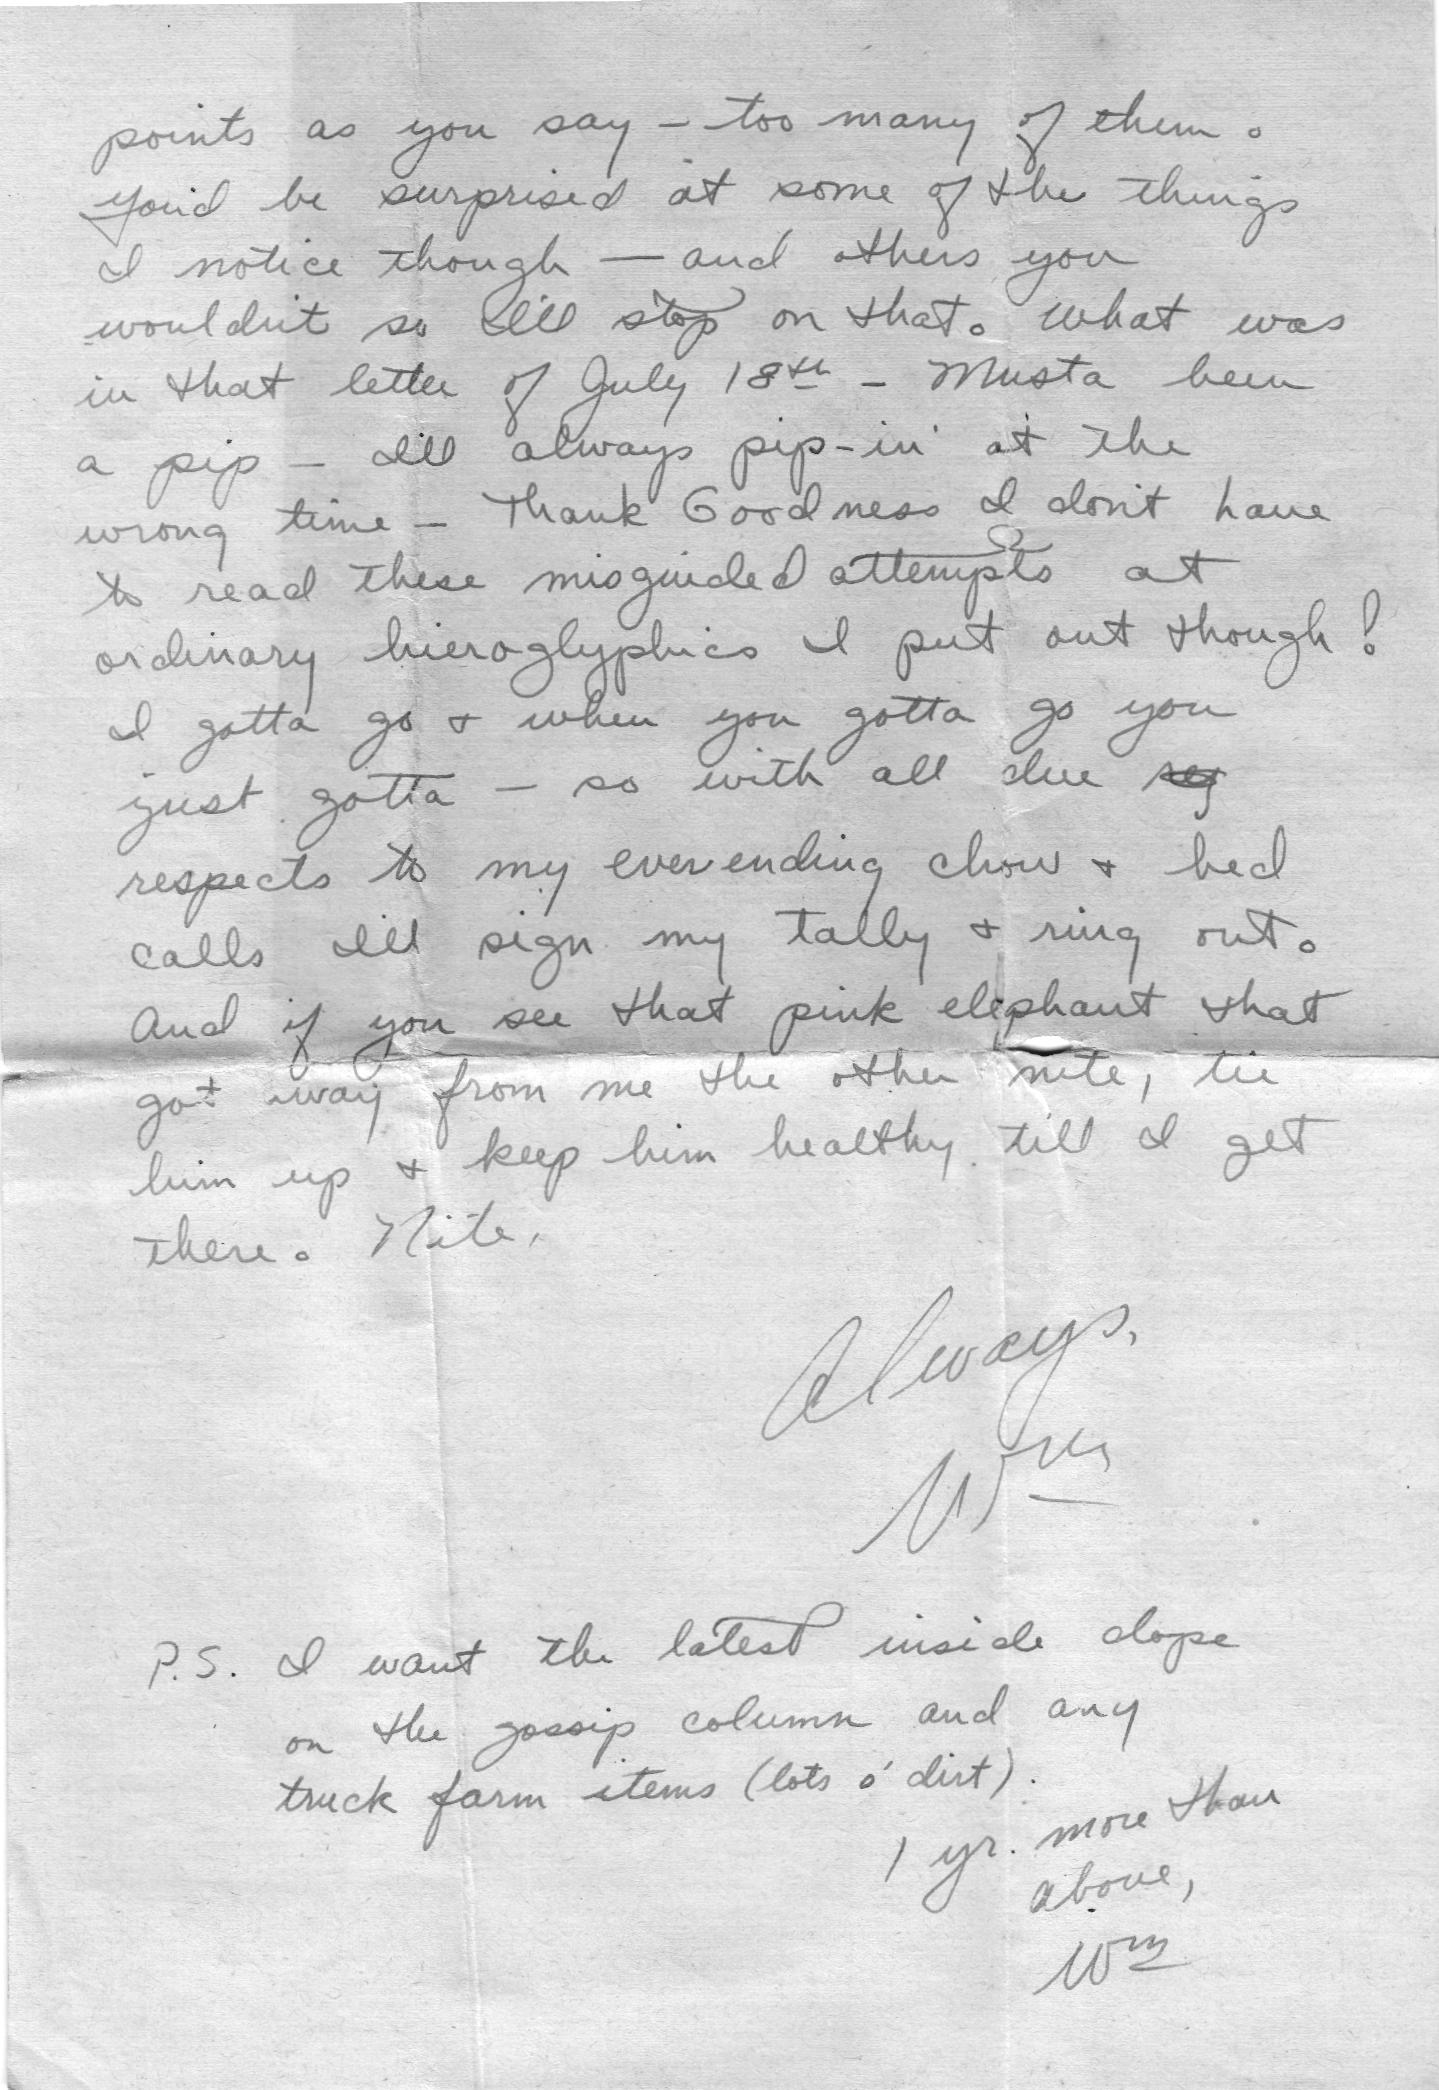 points as you say – too many of them.
You'd be surprised at some of the things
I notice though — and others you
wouldn't so I'll stop on that. What was
in that letter of July 18th – Musta been
a pip – I'll always pip-in' at the
wrong time – Thank Goodness I don't have
to read these misguided attempts at
ordinary hieroglyphics I put out though!
I gotta go & when you gotta go you
just gotta – so with all due
respects to my everending chow & bed
calls I'll sign my tally & ring out.
And if you see that pink elephant that
got away from me the other nite, tie
him up & keep him healthy till I get
there. Nite.
Always,
Wm
P.S. I want the latest inside dope
on the gossip column and any
truck farm items (lots o' dirt).
1 yr. more than
above,
Wm